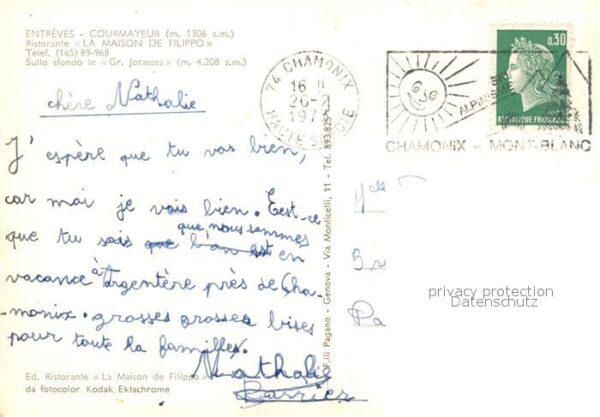 ENTRÈVES - COURMAYEUR (m. 1306 s.m.)
Ristorante « LA MAISON DE FILIPPO »
Telef. (165) 89-968
Sullo sfondo le « Gr. Jorasses » (m. 4.208 s.m.)
74 CHAMONIX
16 H
26-2
197
HAUTE SAVOIE
0,30
REPUBLIQUE FRANCAISE
CHAMONIX - MONT-BLANC
chère Nathalie
J'espère que tu vas bien,
car moi je vais bien. Eest-ce
que tu sais que l'on est que nous sommes en
vacance à Argentère près de Cha-
monix. grosses grosses bises
pour toute la familles.
Nathalie
Barrier
Melle
5 r
Pa
privacy protection
Datenschutz
F.lli Pagano - Genova - Via Monticelli, 11 - Tel. 893.825
Ed. Ristorante « La Maison de Filippo »
da fotocolor Kodak Ektachrome